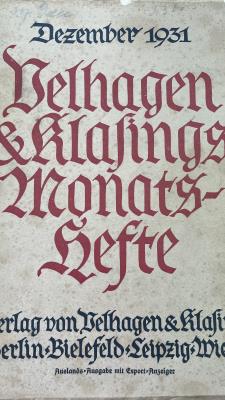 Dezember 1931
Velhagen
& Klasings
Monats-
Hefte
erlag von Velhagen & Klasin
Berlin • Bielefeld • Leipzig • Wie
Auslands-Ausgabe mit Export-Anzeiger